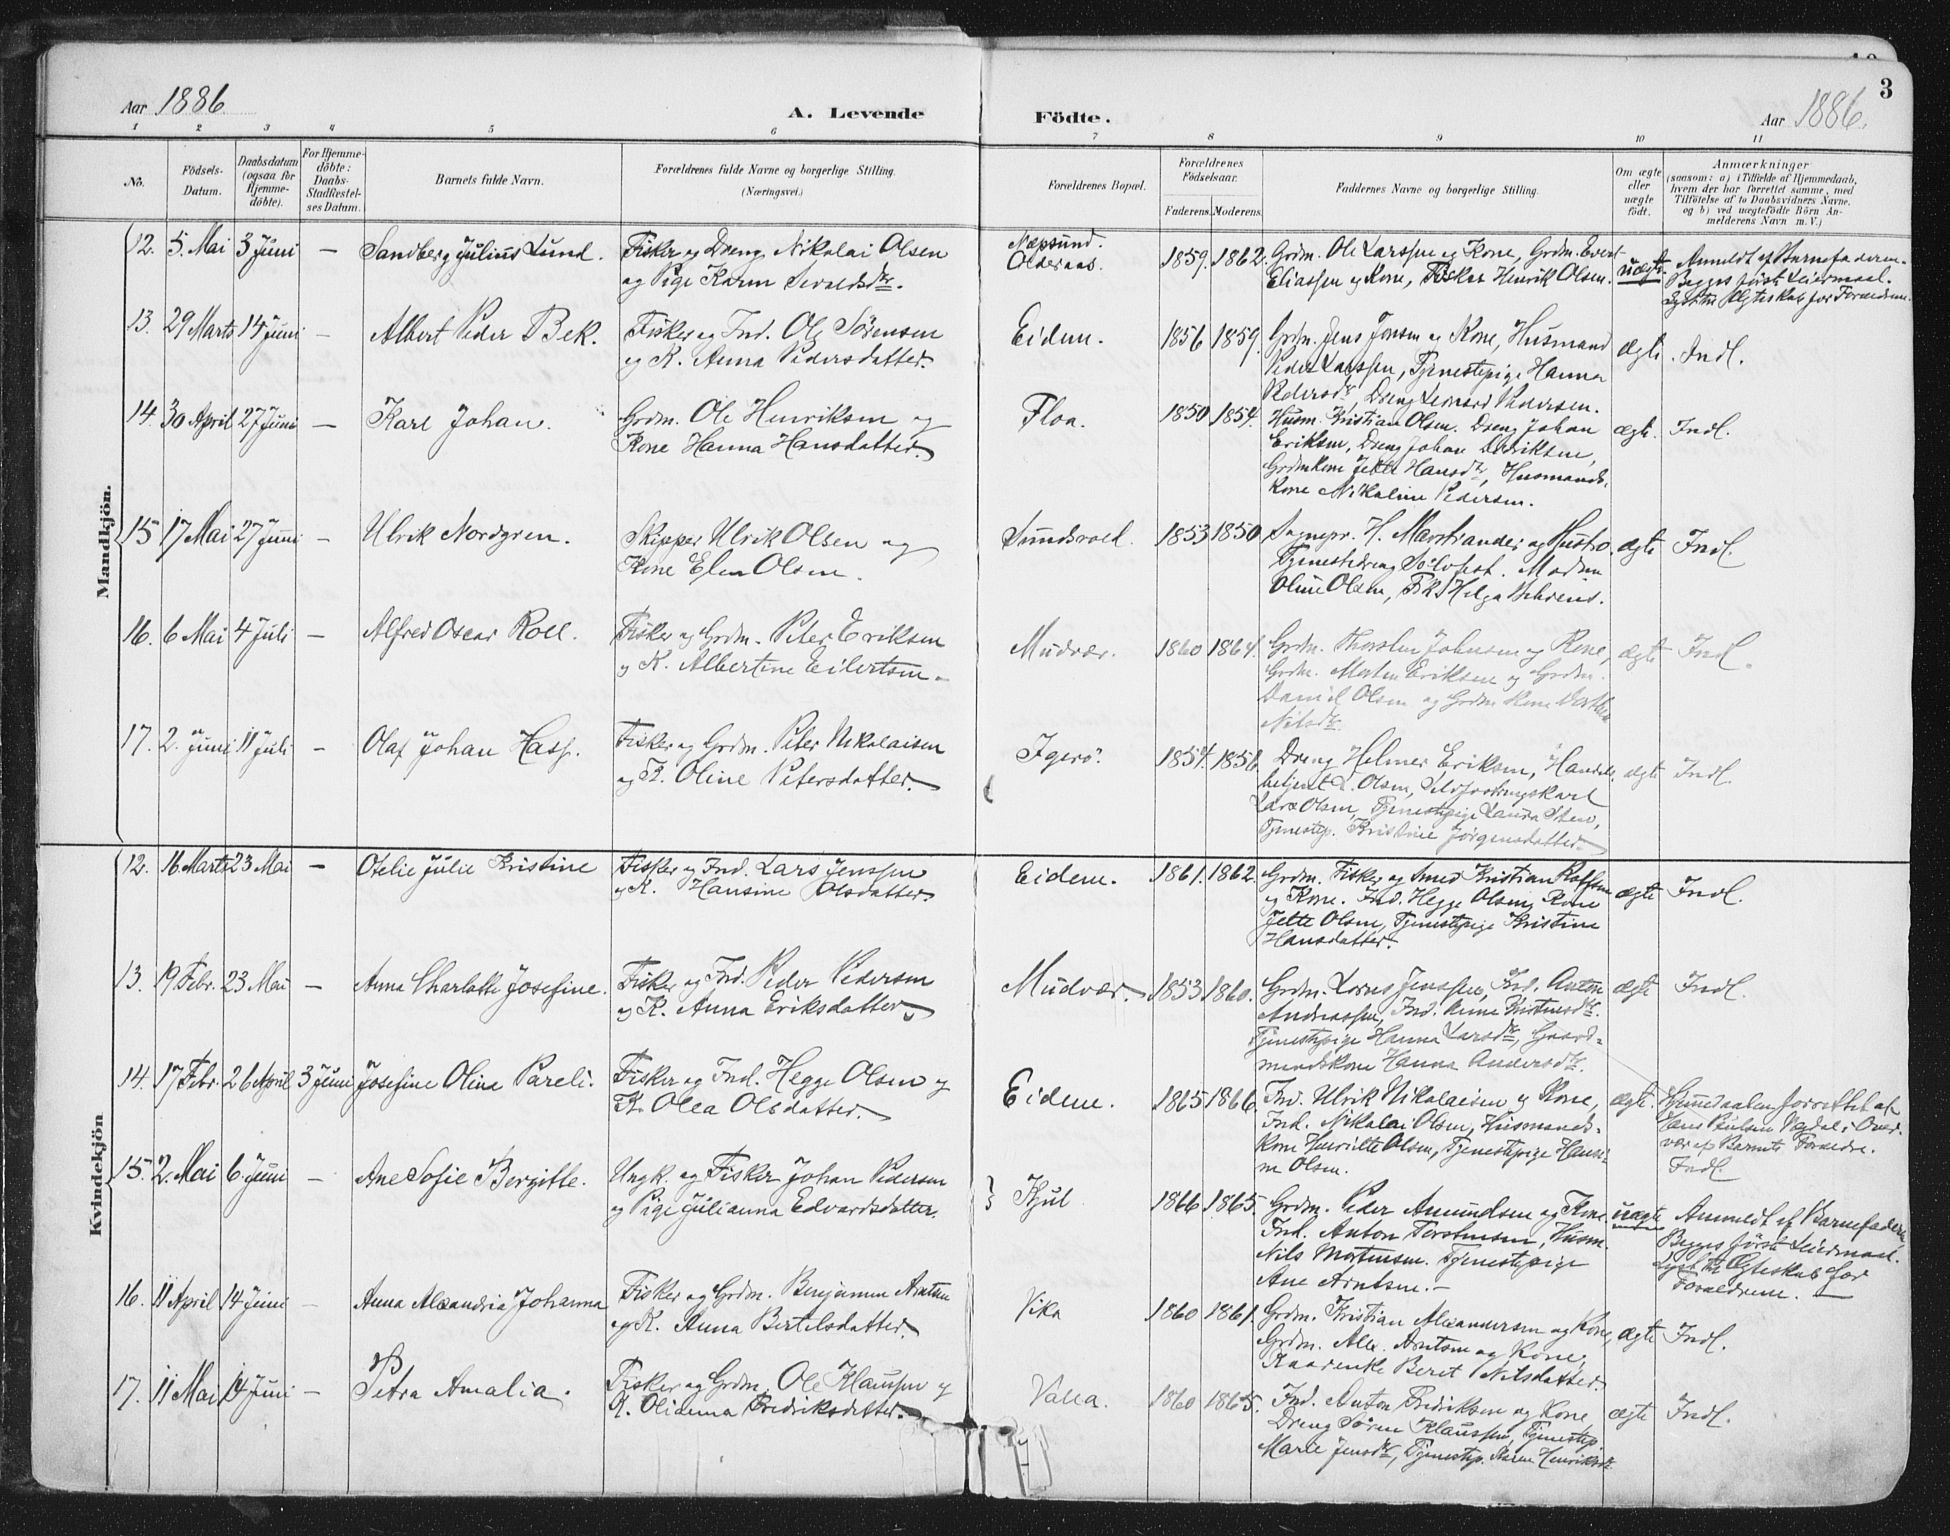 Aar 1886. A. Levende Födte. Aar 1886. 3
1 2 3 4 5 6 7 8 9 10 11
No. Födsels-Datum. Daabsdatum (ogsaa for Hjemme-döbte). For Hjemme-döbte: Daabs-Stadfæstel-ses Datum. Barnets fulde Navn. Forældrenes fulde Navne og borgerlige Stilling. (Næringsvei.) Forældrenes Bopæl. Forældrenes Födselsaar. Faderens. Moderens. Faddernes Navne og borgerlige Stilling. Om ægte eller uægte födt. Anmærkninger (saasom: a) i Tilfælde af Hjemmedaab, hvem der har forrettet samme, med Tilföielse af to Daabsvidners Navne, og b) ved uægtefödte Börn An-melderens Navn m. V.)
Mandkjön.
12. 5. Mai 3 Juni — Sandberg Julius Lund. Fisker og Dreng Nikolai Olsen Næpsund. 1859. 1862. Grdm. Ole Larssen og Kone, Grdm. Evert uægte. Anmeldt af Barnefaderen.
og Pige Karen Sivaldsdtr. Olderaas. Eliassen og Kone, Fisker Henrik Olsen. Begges første Leiermaal.
Lyst til Ægteskab for Forældrene.
13. 29 Marts 14 Juni — Albert Peder Bek. Fisker og Ind. Ole Sörensen Eidem. 1856 1859. Grdm. Jens Jonsen og Kone, Husmand ægte. Indl.
og K. Anna Pedersdatter. Peder Larssen, Tjenestepige Hanna
Pedersdr, Dreng Leonard Pedersen.
14. 30 April 27 Juni — Karl Johan. Grdm. Ole Henriksen og Floa. 1850 1854. Husm. Kristian Olsen. Dreng Johan ægte. Indl.
Kone Hanna Hansdatter. Eriksen, Dreng Johan Dedriksen,
Grdmkone Jette Hansdr, Husmands.
kone Nikoline Pedersen.
15. 17 Mai 27 Juni — Ulrik Nordgren. Skipper Ulrik Olsen og Sundsvold. 1853 1850 Sognepr. H. Marstrander og Hustro. ægte Indl.
Kone Elen Olsen. Tjenestedreng Sölvfest. Madam
Oline Olsen, Frk. Helga Behrens.
16. 6 Mai 4 Juli — Alfred Oscar Roll. Fisker og Grdm. Peter Eriksen Mudvær. 1860 1864. Grdm. Thorsten Johnsen og Kone, ægte Indl.
og K. Albertine Eilertsen. Grdm. Morten Eriksen og Grdm.
Daniel Olsen og Grdm kone
Nilsdr.
17. 2. Juni 11 Juli — Olaf Johan Hass. Fisker og Grdm. Peter Nikolaisen Igerö. 1854. 1856. Dreng Helmer Eriksen, Handels. ægte Indl.
og K. Oline Petersdatter. betjent L. Olsen,
Lars Olsen, Tjenestepige Laura Sten,
Tjenestep. Kristine Jörgensdatter.
Kvindekjön
12. 16. Marts 23 Mai — Otelie Julie Kristine Fisker og Ind. Lars Jenssen Eidem. 1861. 1862. Grdm. Fisker og Smed Kristian Roffsen ægte Indl.
og K. Hansine Olsdatter. og Kone. Ind. Hegge Olsen, Kone
Jette Olsen, Tjenestepige Kristine
Hansdatter.
13. 19 Febr. 23 Mai — Anna Charlotte Josefine. Fisker og Ind. Peder Pedersen Mudvær. 1853 1860. Grdm. Lornts Jenssen, Ind. Anton ægte Indl.
og K. Anna Eriksdatter. Andreassen, Ind. Anne Kristensdr.
Tjenestepige Hanna Larsdr, Gaard-
mandskone Hanna Andersdr.
14. 17 Febr. 26 April 3 Juni Josefine Olina Pareli. Fisker og Ind. Hegge Olsen og Eidem. 1865 1866. Ind. Ulrik Nikolaisen og Kone, ægte. Hjemmedaaben forrettet af
K. Olea Olsdatter. Ind. Nikolai Olsen, Husmands- Hans Paulsen Vagdal i Over-
kone Henriette Olsen, Tjenestepige Hansi- vær af Barnets Forældre.
ne Olsen. Indl.
15. 2. Mai 6. Juni — Ane Sofie Bergitte. Ungk. og Fisker Johan Pedersen } Kjul 1866. 1865. Grdm. Peder Amundsen og Kone. uægte Anmeldt af Barnefaderen.
og Pige Julianna Edvardsdatter. Ind. Anton Torstensen, Husm. Begges første Leiermaal.
Nils Mortensen. Tjenestepige Lyst til Ægteskab for
Ane Arntsen. — Forældrene. —
16. 11 April 14 Juni — Anna Alexandria Johanna Fisker og Grdm. Benjamin Arntsen Vika 1860 1861. Grdm. Kristian Alexandersen og Kone, ægte Indl.
og K. Anna Bertelsdatter. Grdm. Alex. Arntsen og Kone,
Kaarenke Beret Nilsdatter.
17. 11 Mai 14 Juni — Petra Amalia. Fisker og Grdm. Ole Klaussen og Valla. 1860 1865. Ind. Anton Fredriksen og Kone, ægte Indl.
K. Olianna Fredriksdatter. Dreng Sören Klaussen, Tjenestep.
Marie Jensdr, Tjenestep. Karen Henriksdr.